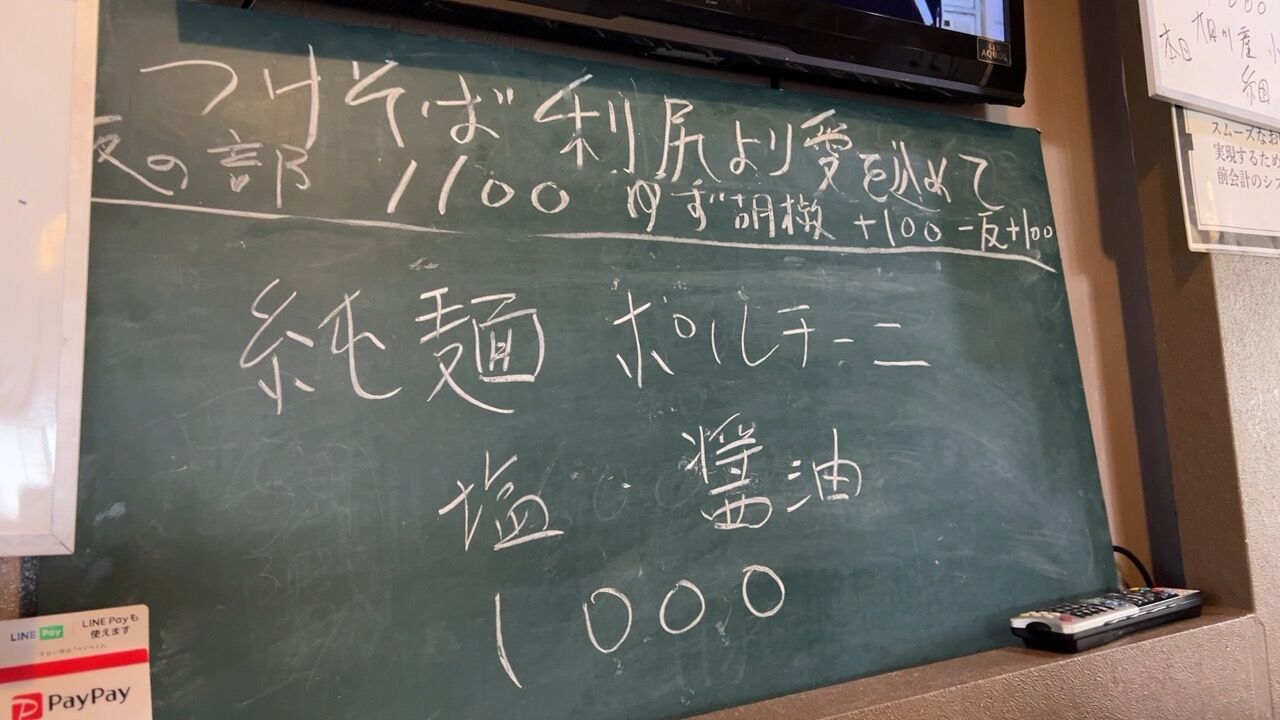 つけそば 利尻より愛を込めて
夜の部 1100 ゆず胡椒 +100 一反+100
純麺 ポルチーニ
塩・醤油
1000
AQUOS
本日 相川産
細
スムーズなお
実現するため
前会計のシス
LINE Pay
LINE Payも
使えます
PayPay